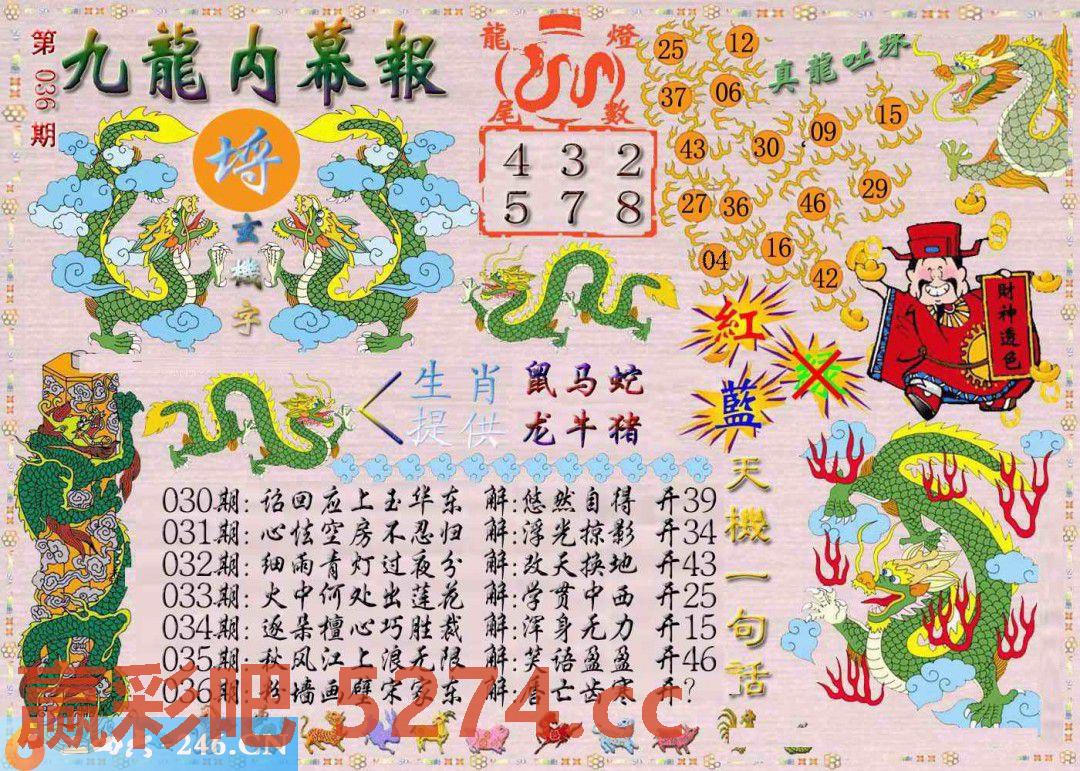 第036期
九龍内幕報
龍燈
尾數
4 3 2
5 7 8
真龍吐珠
25 12
37 06
43 30 09 15
27 36 46 29
04 16 42
玄機字
財神透色
紅
藍
生肖 鼠马蛇
提供 龙牛猪
天機一句话
030期: 诏回应上玉华东 解:悠然自得 开39
031期: 心怯空房不忍归 解:浮光掠影 开34
032期: 细雨青灯过夜分 解:改天换地 开43
033期: 火中何处出莲花 解:学贯中西 开25
034期: 逐朵檀心巧胜裁 解:浑身无力 开15
035期: 秋风江上浪无限 解:笑语盈盈 开46
036期: 粉墙画壁宋家东 解:唇亡齿寒 开?
赢彩吧 5274.cc
246.CN